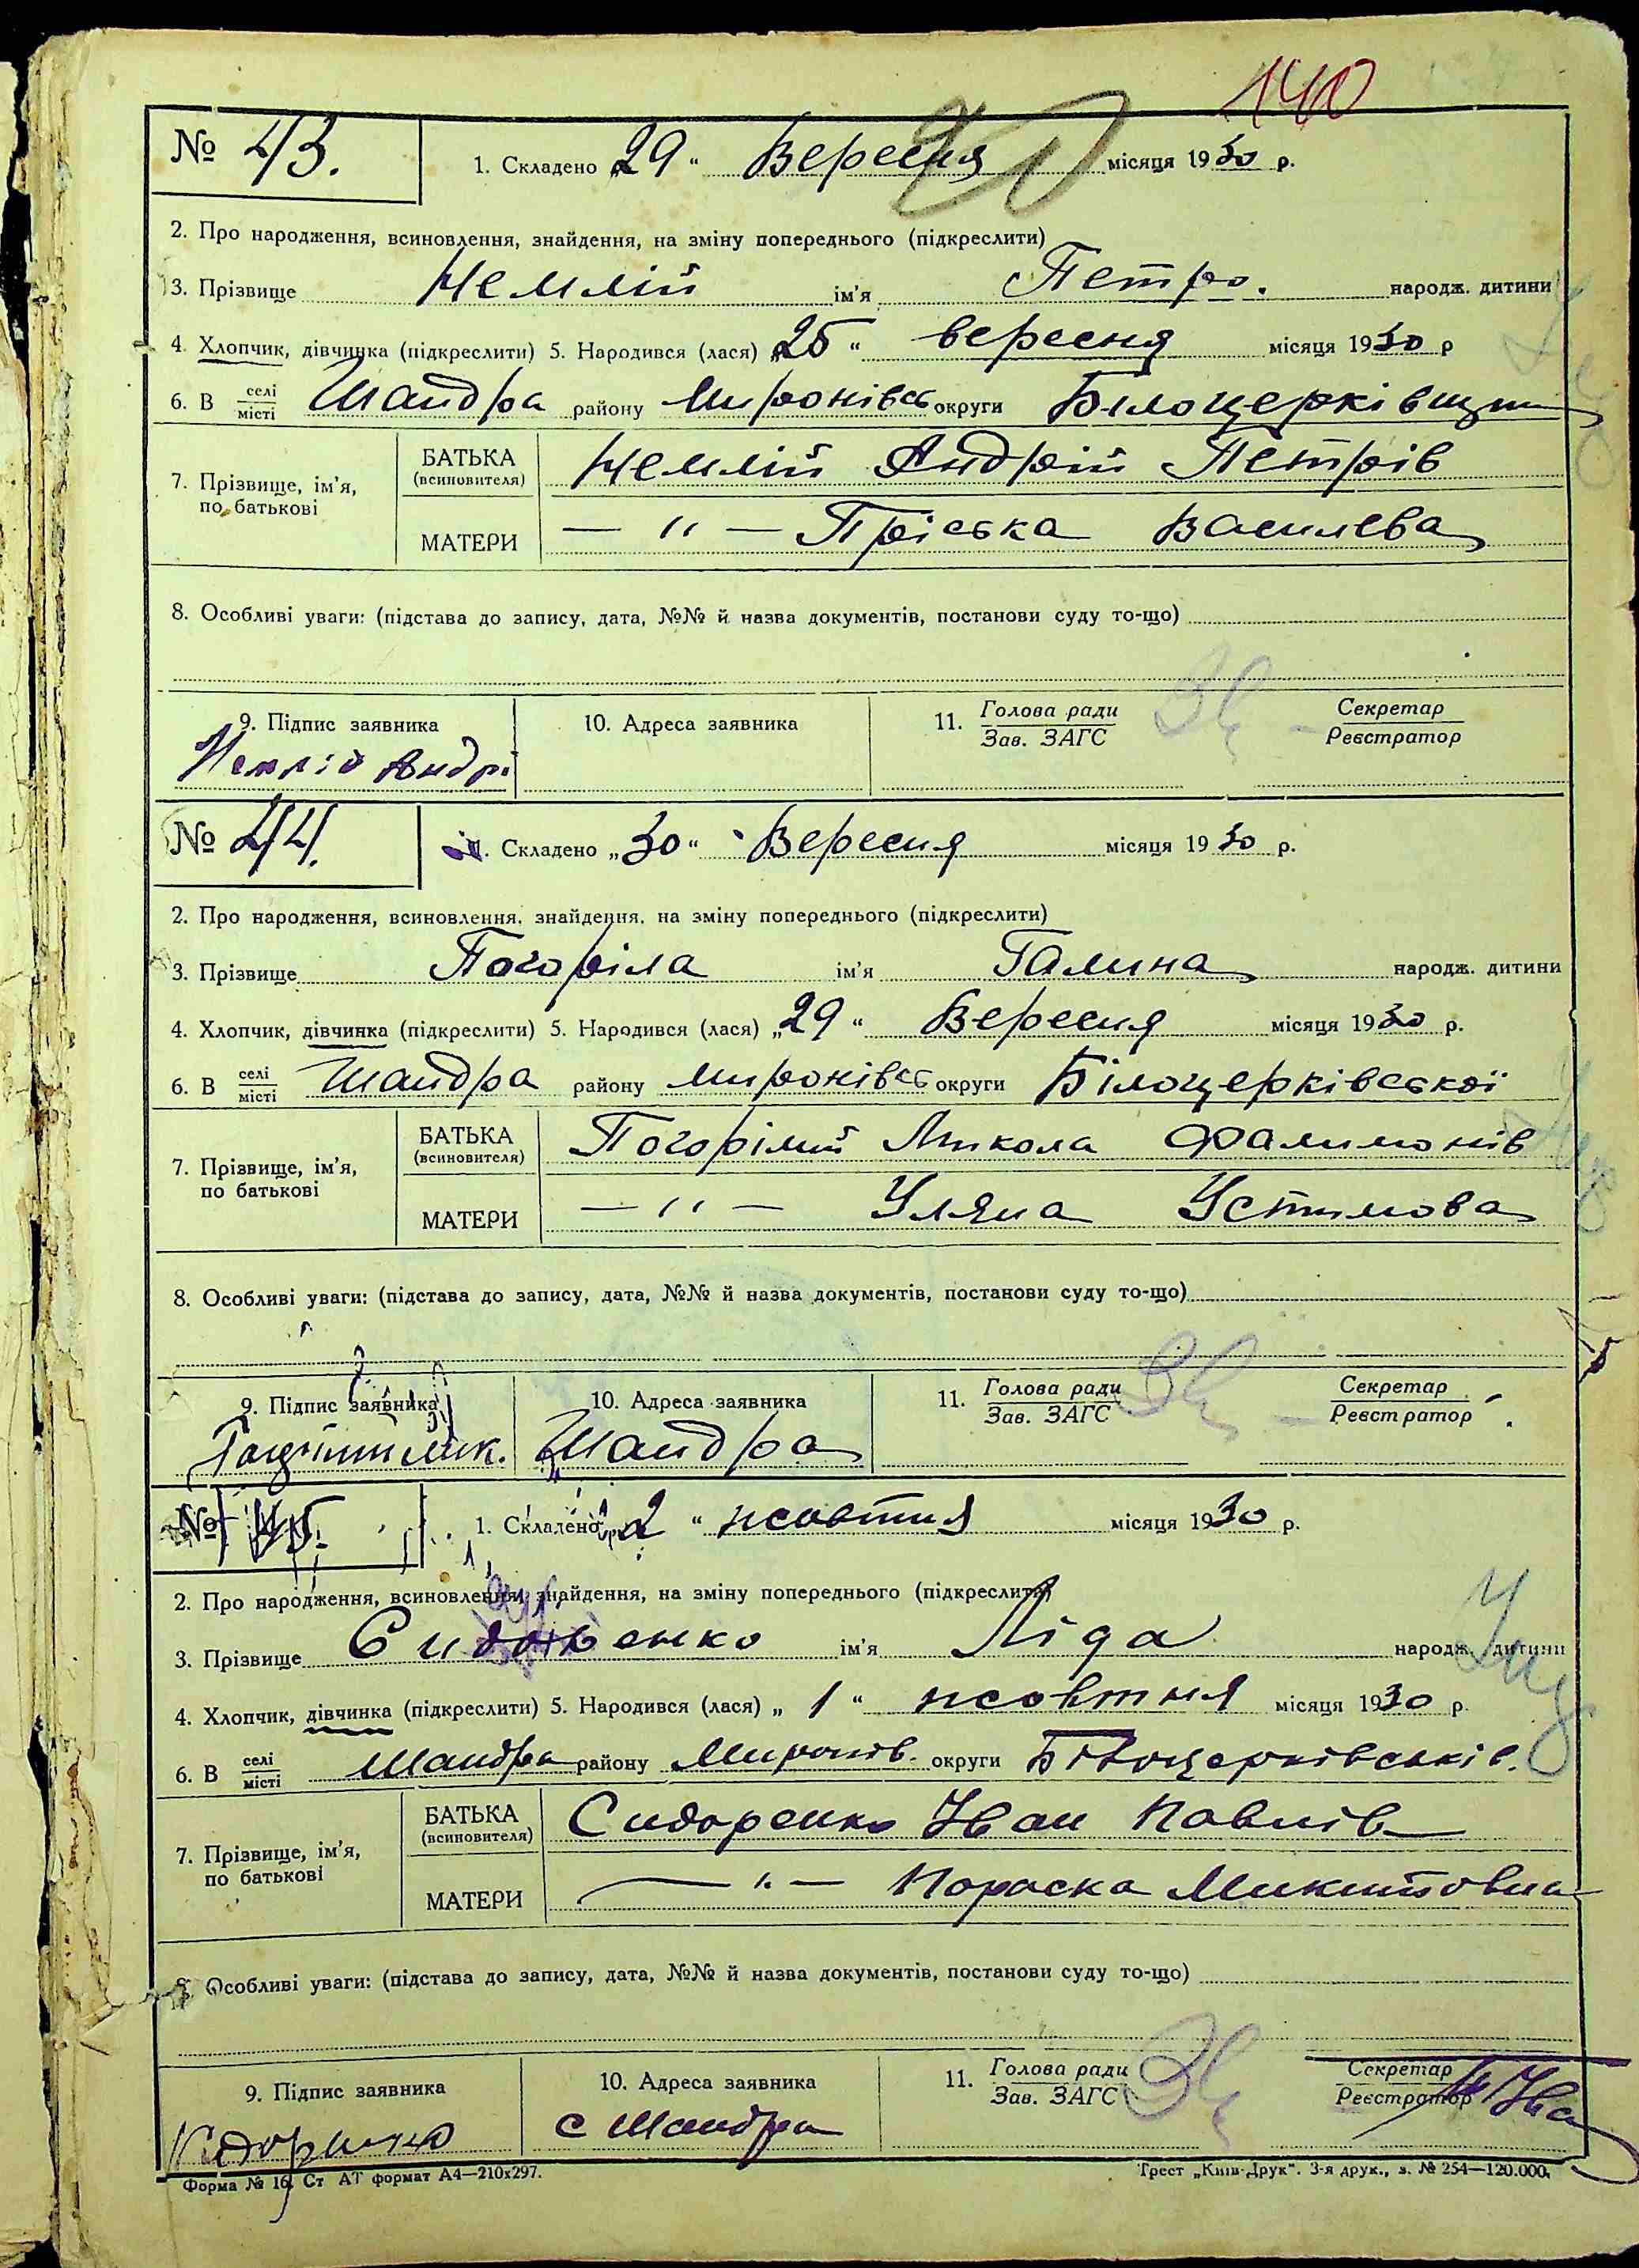 140
20
№ 43. 1. Складено „29“ Вересня місяця 1930 р.
2. Про народження, всиновлення, знайдення, на зміну попереднього (підкреслити)
3. Прізвище Немлій ім'я Петро. народж. дитини
4. Хлопчик, дівчинка (підкреслити) 5. Народився (лася) „25“ вересня місяця 1930 р
6. В селі/місті Шандра району Миронівсь округи Білоцерківщини
7. Прізвище, ім'я, по батькові
БАТЬКА (всиновителя) Немлій Андрій Петрів
МАТЕРИ — " — Пріська Василева
8. Особливі уваги: (підстава до запису, дата, №№ й назва документів, постанови суду то-що)
9. Підпис заявника 10. Адреса заявника 11. Голова ради/Зав. ЗАГС Секретар/Реєстратор
Немлій Андрі
№ 44. 1. Складено „30“ Вересня місяця 1930 р.
2. Про народження, всиновлення, знайдення, на зміну попереднього (підкреслити)
3. Прізвище Погоріла ім'я Галина народж. дитини
4. Хлопчик, дівчинка (підкреслити) 5. Народився (лася) „29“ Вересня місяця 1930 р.
6. В селі/місті Шандра району Миронівсь округи Білоцерківської
7. Прізвище, ім'я, по батькові
БАТЬКА (всиновителя) Погорілий Микола Фалимонів
МАТЕРИ — " — Уляна Устимова
8. Особливі уваги: (підстава до запису, дата, №№ й назва документів, постанови суду то-що)
9. Підпис заявника 10. Адреса заявника 11. Голова ради/Зав. ЗАГС Секретар/Реєстратор
Шандра
№ 45. 1. Складено „2“ жовтня місяця 1930 р.
2. Про народження, всиновлення, знайдення, на зміну попереднього (підкреслити)
3. Прізвище ім'я Ліда народж. дитини
4. Хлопчик, дівчинка (підкреслити) 5. Народився (лася) „1“ жовтня місяця 1930 р.
6. В селі/місті Шандра району Миронів. округи Білоцерківськів.
7. Прізвище, ім'я, по батькові
БАТЬКА (всиновителя) Сидоренко Іван Павлів
МАТЕРИ — " — Пораска Микитовна
8. Особливі уваги: (підстава до запису, дата, №№ й назва документів, постанови суду то-що)
9. Підпис заявника 10. Адреса заявника 11. Голова ради/Зав. ЗАГС Секретар/Реєстратор
с Шандра
Форма № 16. Ст АТ формат А4—210х297. Трест „Київ-Друк“. 3-я друк., з. № 254—120.000.